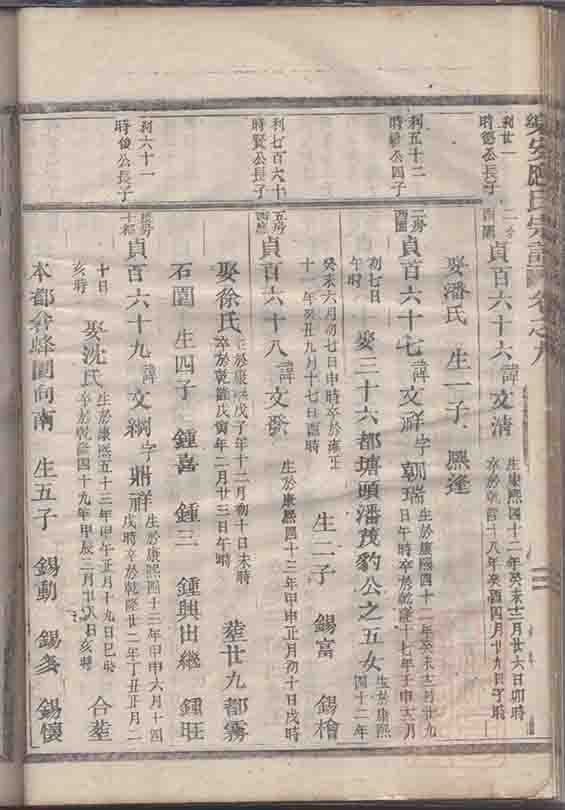 應氏宗譜 卷之九
利廿一
時德公長子
二房
西園
貞百六十六 諱 文清
生康熙四十二年癸未十二月廿六日卯時
卒於乾隆十八年癸酉四月廿九日子時
娶潘氏 生一子 熙逢
利五十二
公四子
二房
西園
貞百六十七 諱 文祥 字 朝瑞
生於康熙四十二年癸未十二月廿九
日午時卒於乾隆十七年壬申六月
初七日
午時
娶三十六都塘頭潘茂豹公之五女
生於康熙
四十二年
癸未六月初七日申時卒於雍正
十一年癸丑九月十七日酉時
生二子 錫富 錫檜
利七百六十
時賢公長子
五房
貞百六十八 諱 文發
生於康熙四十三年甲申正月初十日戌時
娶徐氏
生於康熙戊子年十二月初十日未時
卒於乾隆戊寅年二月廿三日午時
葬廿九都霧
石園 生四子 鍾喜 鍾三 鍾興出繼 鍾旺
利六十一
時俊公長子
長房
十都
貞百六十九 諱 文綱 字 鼎祥
生於康熙四十三年甲申六月十四
戌時卒於乾隆廿二年丁丑正月二
十日
亥時
娶沈氏
生於康熙五十三年甲午正月十九日巳時
卒於乾隆四十九年甲辰二月廿八日亥時
合葬
本都弇蜂園向南 生五子 錫勳 錫 錫懷